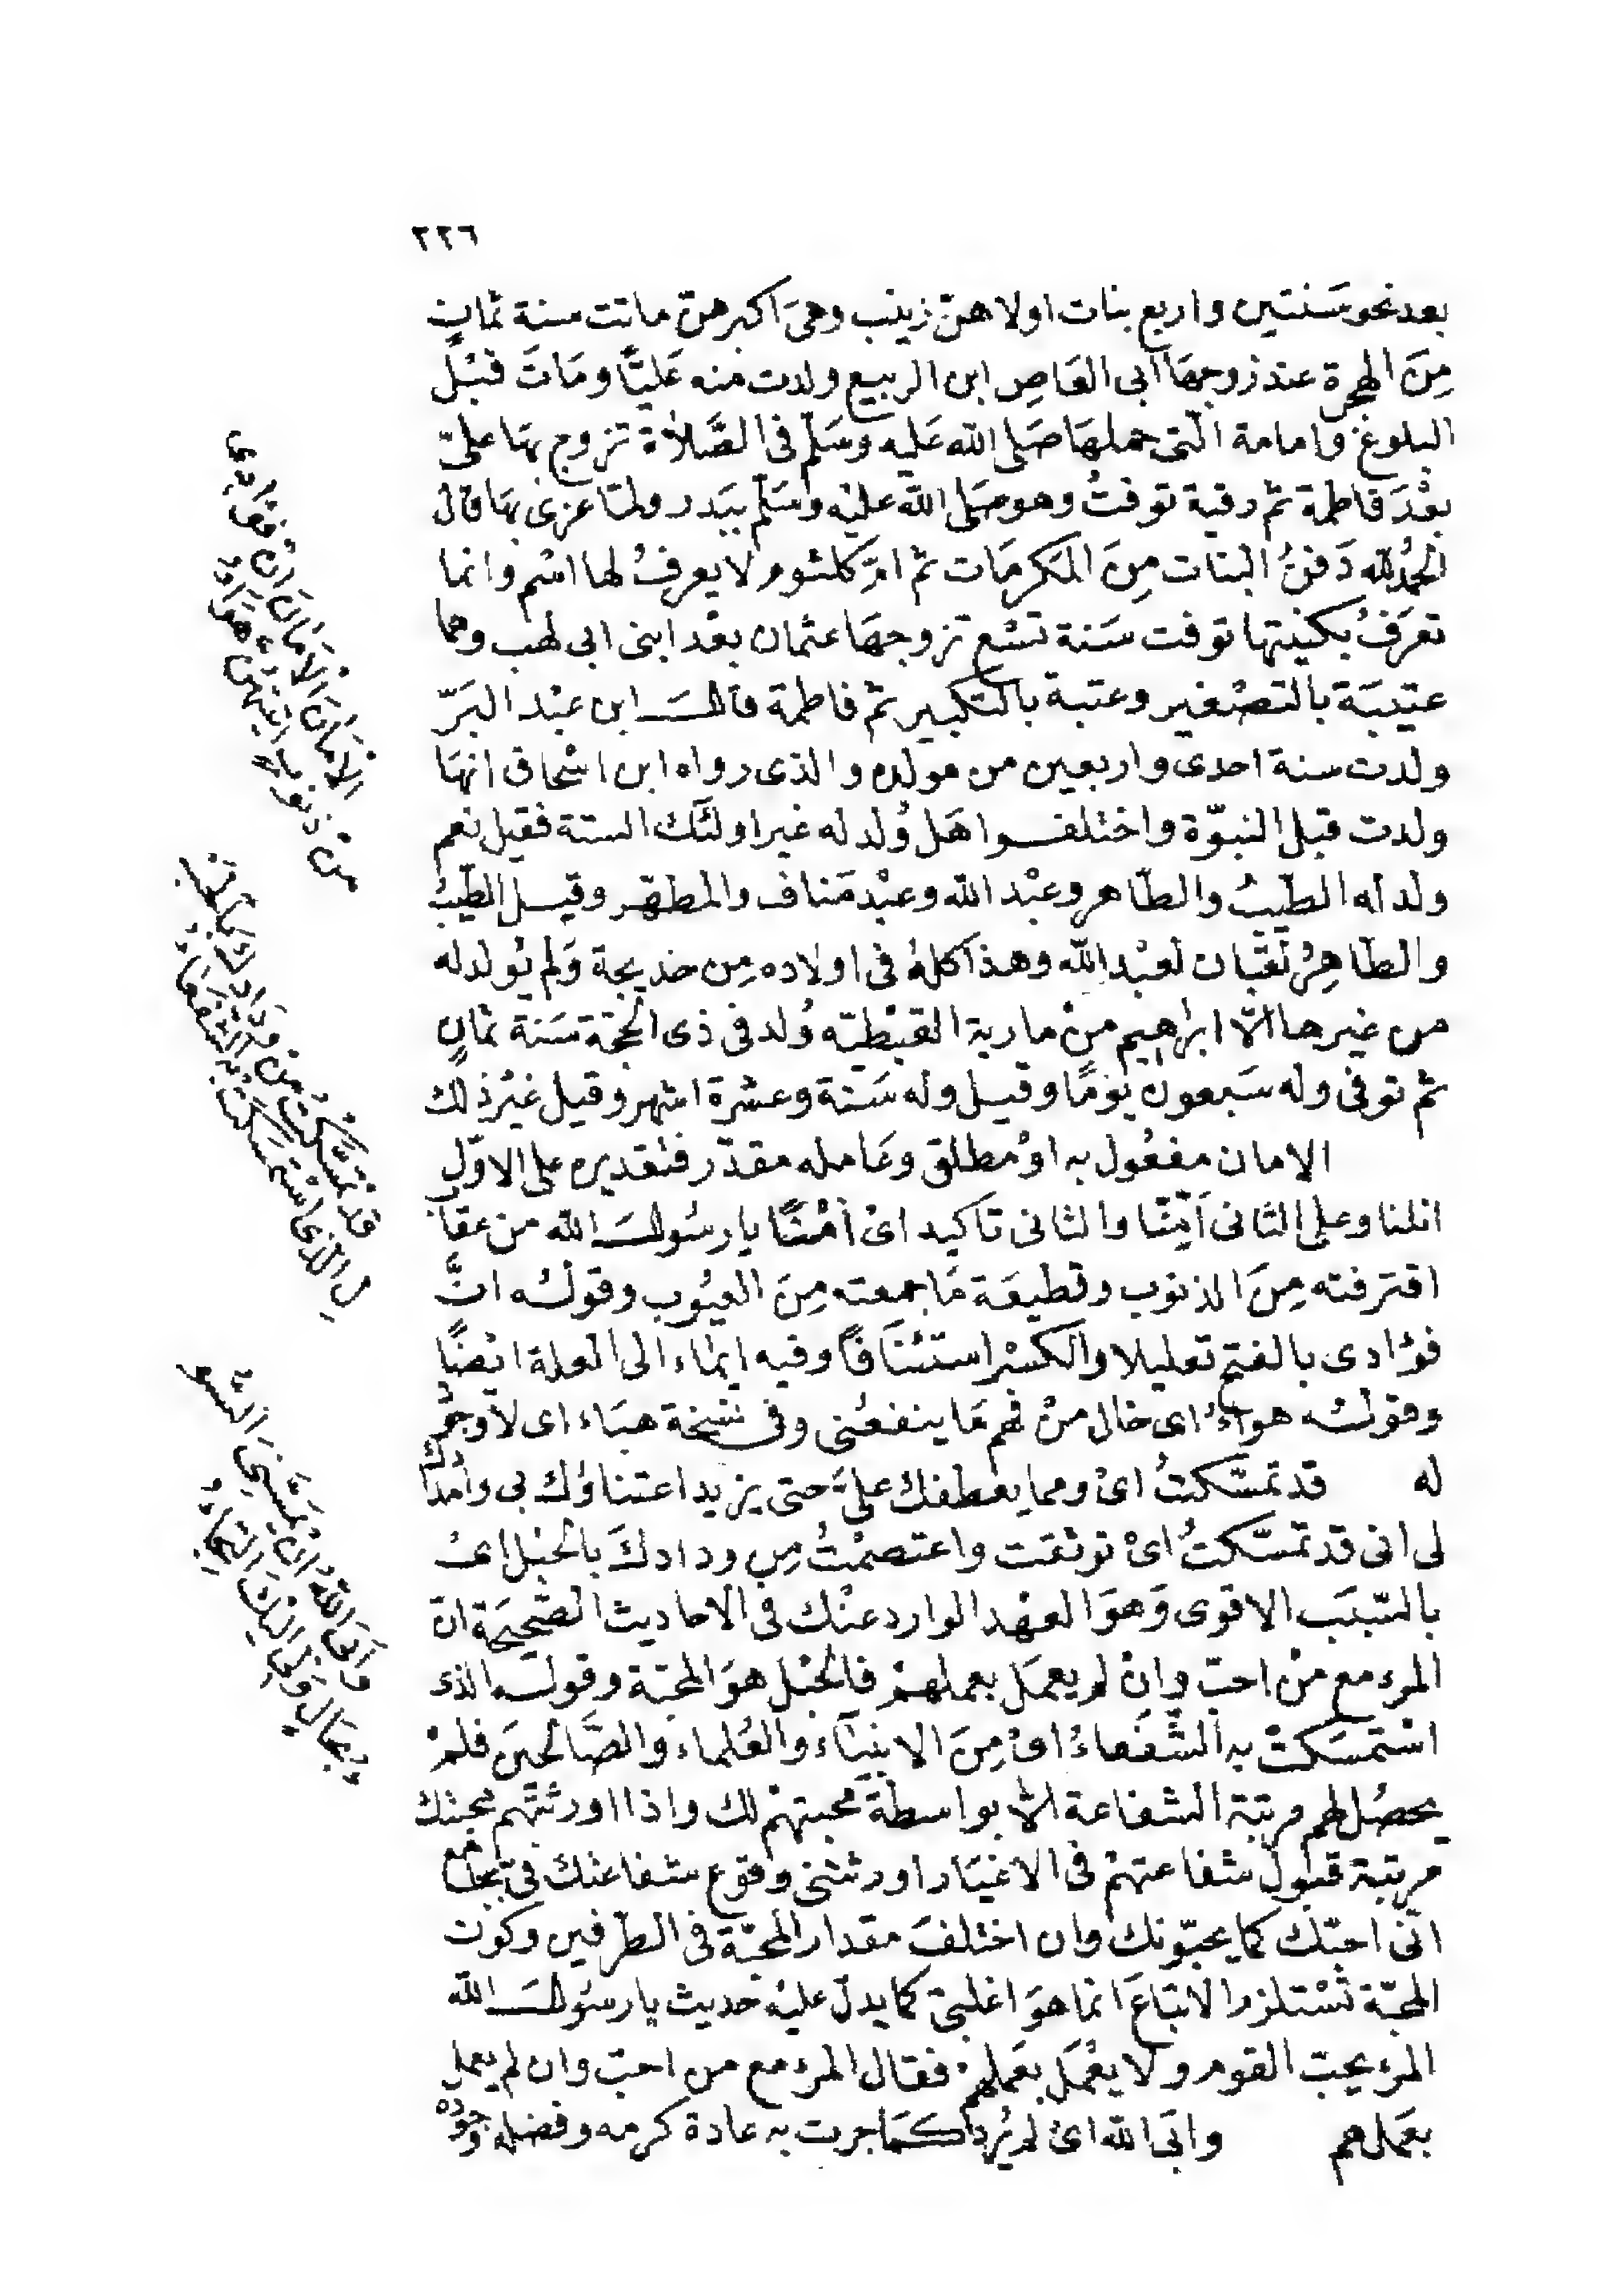 ٢٢٦
بعد نحو سَنتين واربع بنات اولاهنّ زينب وهىَ اكبرهنّ ماتت سنة ثمانٍ
مِنَ الهجرة عند زوجهَا ابى العَاصِ ابن الربيع ولدت منه عَليًّا ومَاتَ قبْل
البلوغ وامامة الّتى حملهَا صَلى الله عَليه وسَلّم فى الصَّلاة تزوج بهَا علىّ
بعْدَ فاطمة ثم رقية توفتْ وهو صَلى الله عليْه وسَلّم ببَدر ولمّا عزى بهَا قال
الحمْدُ للّه دَفنُ البنات مِنَ المَكرمَات ثم امّ كلثوم لا يعرفُ لها اسْم وانما
تعرَفُ بكنيتها توفت سَنة تسْع تزوجهَا عثمان بعْد ابنى ابى لهب وهما
عتيبَة بالتصْغير وعتبة بالتكبير ثم فاطمة قالَ ابن عبْد البَرّ
ولدت سنة احدى واربعين من مولده والذى رواه ابن اسْحاق انهَا
ولدت قبل النبوّة واختلفوا هَل وُلد له غير اولئك الستة فقيل نعم
ولد له الطّيبُ والطّاهر وعبْد الله وعبْد مَناف والمطهّر وقيل الطّيبُ
والطّاهِرُ لقبَان لعبْد اللّه وهذا كلهُ فى اولاده مِن خديجة وَلم يُولد له
من غيرها الّا ابراهيم منْ مارية القبْطيّه وُلد فى ذى الحجّة سَنة ثمانٍ
ثم توفى وله سَبعون يوْمًا وقيل وله سَنة وعشْرة اشهر وقيل غيْر ذلك
الامان مفعُول به اوْ مطلق وعَامله مقدّر فتقديره على الاوّل
انلنا وعلى الثانى اَمِّنّا والثانى تاكيد اىْ اَمْنًا يا رسُولَ الله من عقاب
اقترفته مِنَ الذنوب وقطيعَة مَا جمعته مِنَ العيُوب وقولُه انَّ
فؤادى بالفتح تعليلا والكسْر استئنَافًا وفيه ايماء الى العلة ايضًا
وقولُه هوَاءُ اى خال منْ فهم مَا ينفعُنى وفى نسْخة هبَاء اى لا وجُود
له قد تمسّكتُ اىْ ومما يعطفك علىَّ حتى يزيد اعتناؤك بى وامْدادك
لى انى قد تمسّكتُ اىْ توثقت واعتصمْتُ مِن ودادكَ بالحبْل اىْ
بالسّبَب الاقوى وَهوَ العهْد الوارد عنْك فى الاحاديث الصّحيحَة انّ
المرء مع منْ احبّ وانْ لم يعمَل بعملهمْ فالحبْل هوَ المحبّة وقوله الذى
اسْتمسَكتْ به الشّفَعاءُ اىْ مِنَ الانبيَآء والعُلماء والصَّالحينَ فلمْ
يحصُل لهم مرتبة الشفاعة الّا بواسطة محبتهمْ لك واذا اورثتهم محبتك
مرتبة قبول شفاعتهمْ فى الاغيَار اورثتنى وقوع شفاعتك فىّ بجامع
انّى احبّك كما يحبّونك وان اختلفَ مقدار المحبّة فى الطرفين وكون
المحبّة تسْتلزم الاتبَاعَ انما هوَ اغلبىّ كما يدلّ عليْه حَديث يا رسُولَ الله
المرء يحبّ القوم ولا يعْمَل بعَملهمْ فقال المرء مع من احبّ وان لم يعمل
بعَملهم وابَى الله اىْ لم يُرد كمَا جرت به عادة كرمه وفضله وجُوده
الاَمَانَ الاَمَانَ اِنَّ فُؤَادِى
مِنْ ذنُوبٍ اَتَيْتُهُنَّ هَوَاءُ
قَدْ تَمَسَّكْتُ مِنْ وِدَادِكَ بِالْحَبْ
لِ الَّذِى اسْتَمْسَكَتْ بِهِ الشُّفَعَاءُ
وَاَبَى اللّٰهُ اَنْ يَمَسَّنِىَ السُّو
ءُ بِحَالٍ وَلِى اِلَيْكَ الْتِجَاءُ